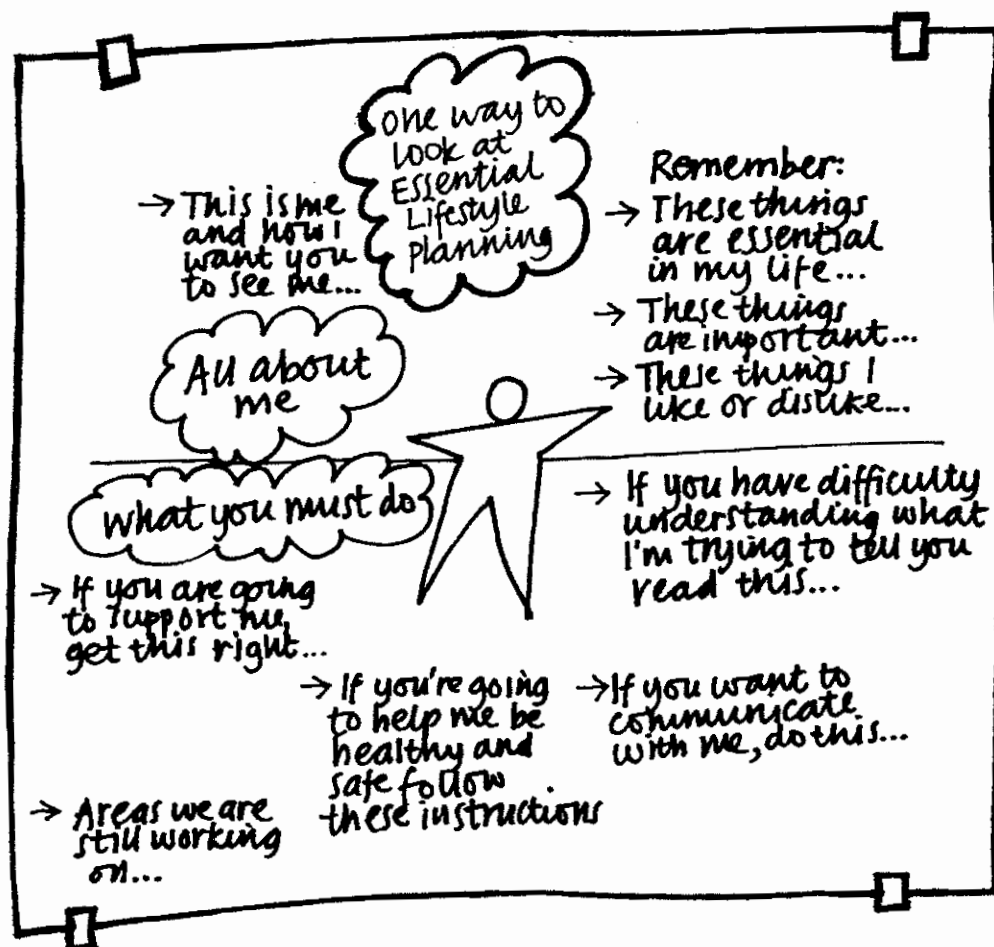 One way to
look at
Essential
Lifestyle
Planning
→ This is me
and how I
want you
to see me...
Remember:
→ These things
are essential
in my life...
→ These things
are important...
→ These things I
like or dislike...
All about
me
What you must do
→ If you are going
to support me,
get this right...
→ If you have difficulty
understanding what
I'm trying to tell you
read this...
→ If you're going
to help me be
healthy and
safe follow
these instructions
→ If you want to
communicate
with me, do this...
→ Areas we are
still working
on...